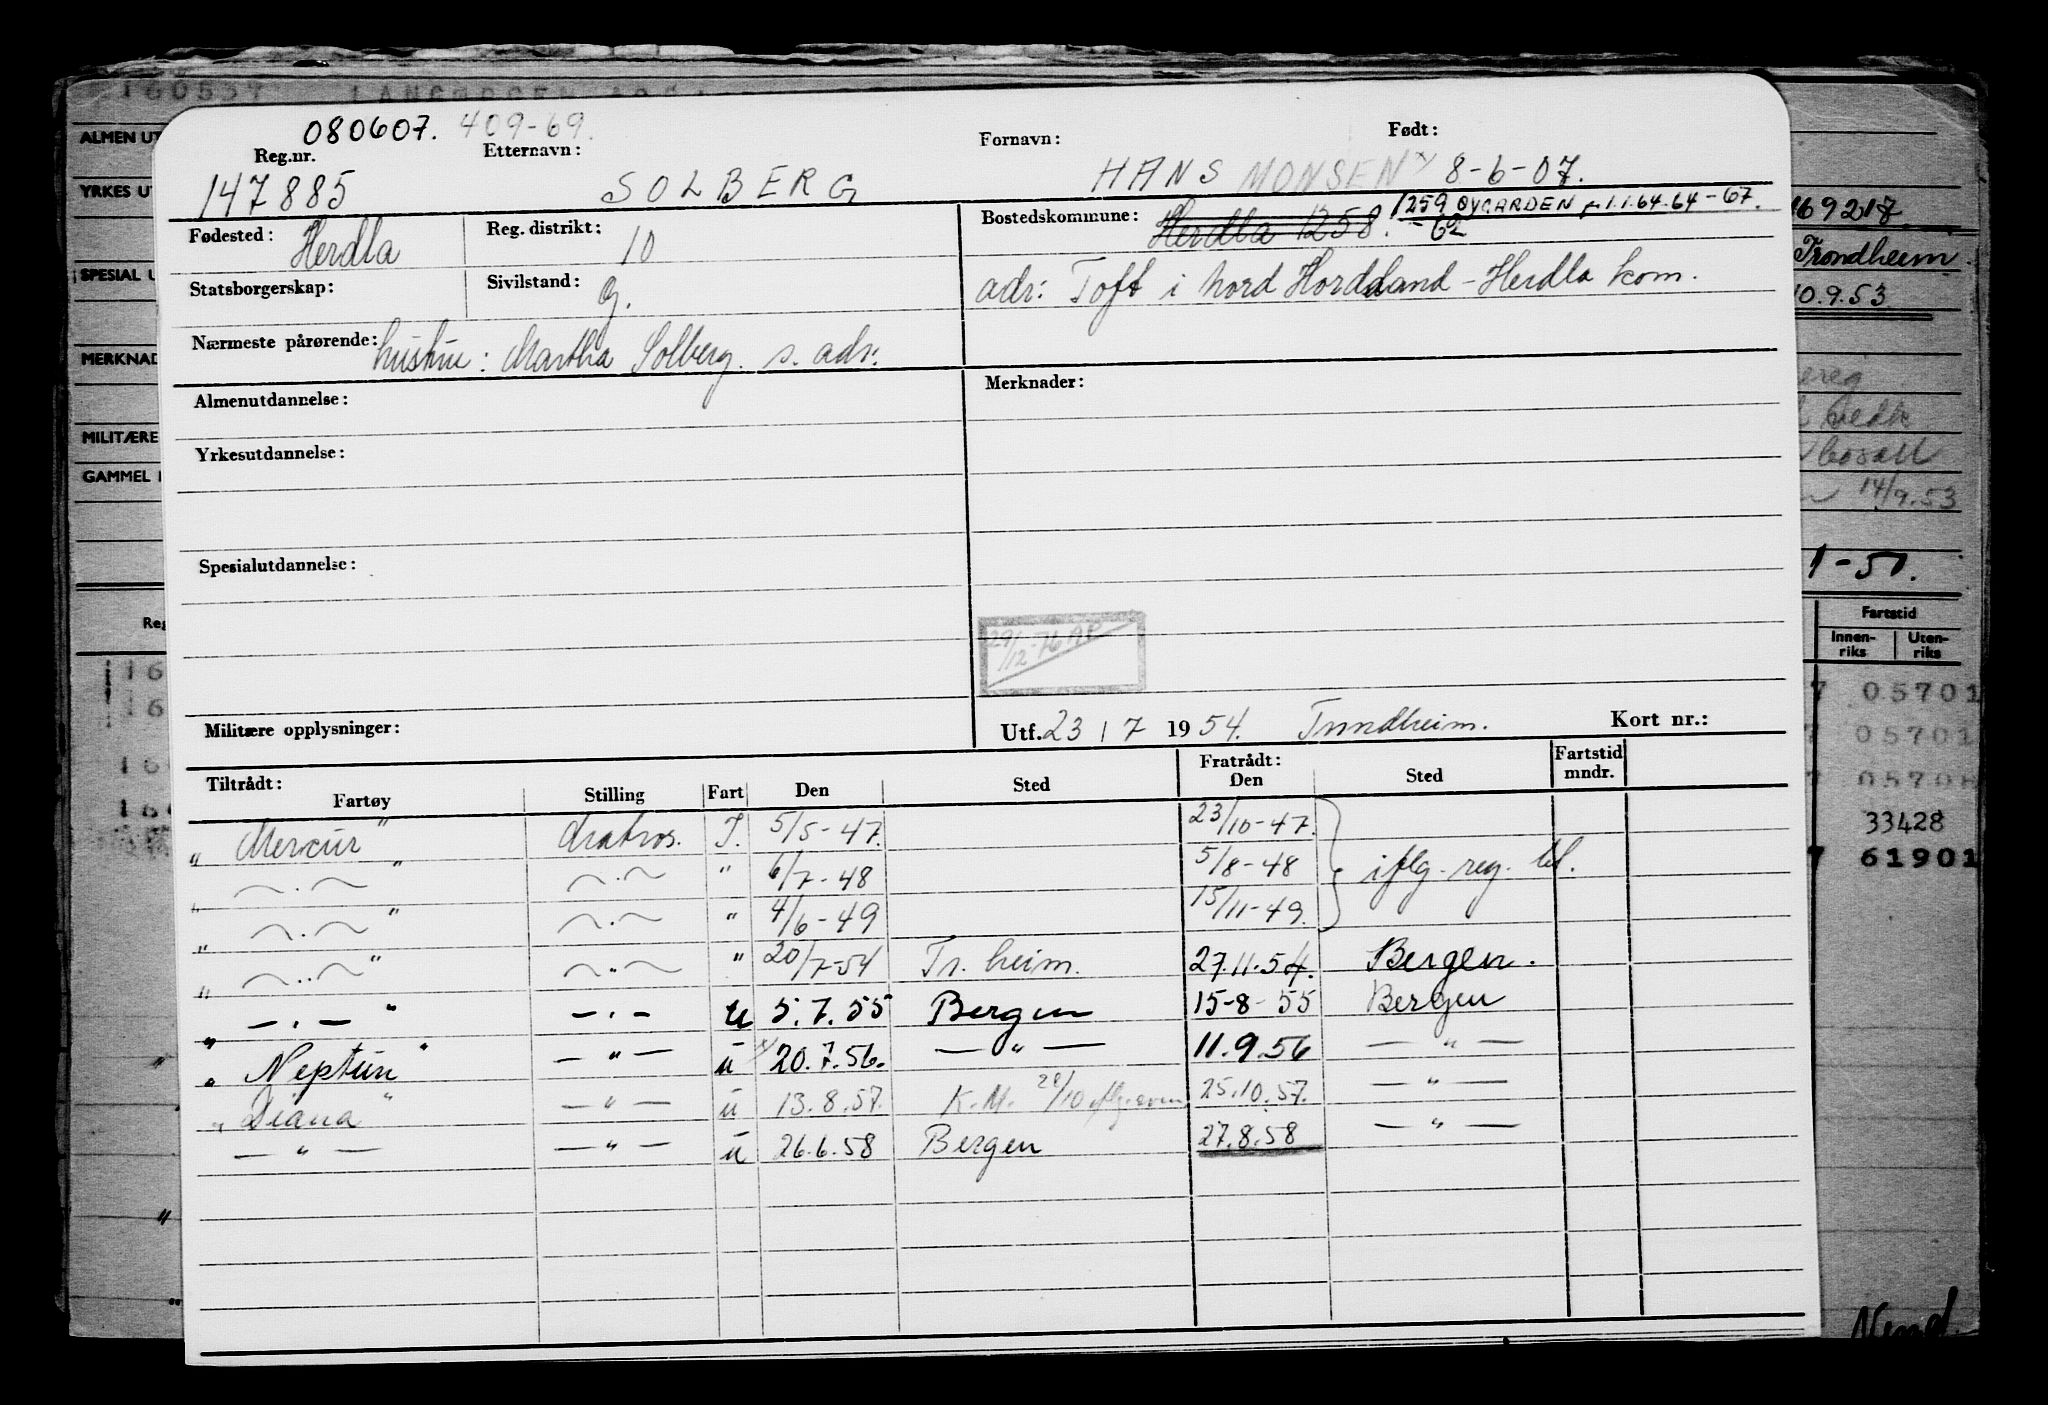 080607. 409-69.
Reg.nr. Etternavn: Fornavn: Født:
147885 SOLBERG HANS MONSEN x) 8-6-07.
Fødested: Herdla Reg. distrikt: 10 Bostedskommune: Herdla 1258. 1259 ØYGARDEN fr 1.1.64.64-67.
-62
Statsborgerskap: Sivilstand: G. adr: Toft i Nord Hordaland - Herdla kom.
Nærmeste pårørende: hustru: Martha Solberg. s. adr:
Almenutdannelse: Merknader:
Yrkesutdannelse:
Spesialutdannelse:
29/12-76 AP
Militære opplysninger: Utf. 23 / 7 1954. Trondheim. Kort nr.:
Tiltrådt: Fratrådt: Fartstid
Fartøy Stilling Fart Den Sted Den Sted mndr.
"Mercur" Matros. I. 5/5-47. 23/10-47.
" ~.~ " ~.~ " 6/7-48 5/8-48 iflg. reg. bl.
" ~.~ " ~.~ " 4/6-49 15/11-49.
" ~..~ " ~..~ " 20/7-54 Tr. heim. 27.11.54. Bergen.
" -.- " -.- U 5.7.55 Bergen 15-8-55 Bergen
"Neptun" -"- U x) 20.7.56. -"- 11.9.56 -"-
"Diana" -"- U 13.8.57. K.M. 28/10 25.10.57. -"-
-"- -"- U 26.6.58 Bergen 27.8.58 -"-
160557
ALMEN UT
YRKES UT
SPESIAL U
MERKNAD
MILITÆRE
GAMMEL
Reg
169217
Trondheim
10.9.53
14/9.53
1-51.
Fartstid
Innen-riks Uten-riks
7 05701
7 05701
7 05708
33428
7 61901